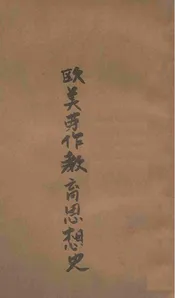 欧美劳作教育思想史